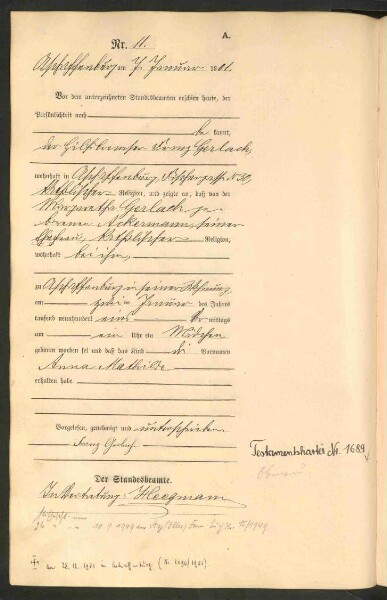 A.
Nr. 11.
Aschaffenburg am 7. Januar 1901.
Vor dem unterzeichneten Standesbeamten erschien heute, der
Persönlichkeit nach
be kannt,
der Franz Gerlach,
wohnhaft in Aschaffenburg,
katholischer Religion, und zeigte an, daß von der
Margaretha Gerlach, ge-
borenen Ackermann, seiner
Ehefrau, katholischer Religion,
wohnhaft bei ihm,
zu Aschaffenburg in seiner Wohnung
am zwei ten Januar des Jahres
tausend neunhundert eins Vor mittags
um ein Uhr ein Mädchen
geboren worden sei und daß das Kind die Vornamen
Anna Mathilde
erhalten habe.
Vorgelesen, genehmigt und unterschrieben
Franz Gerlach.
Der Standesbeamte.
In Vertretung:
Testamentskartei Nr. 1689